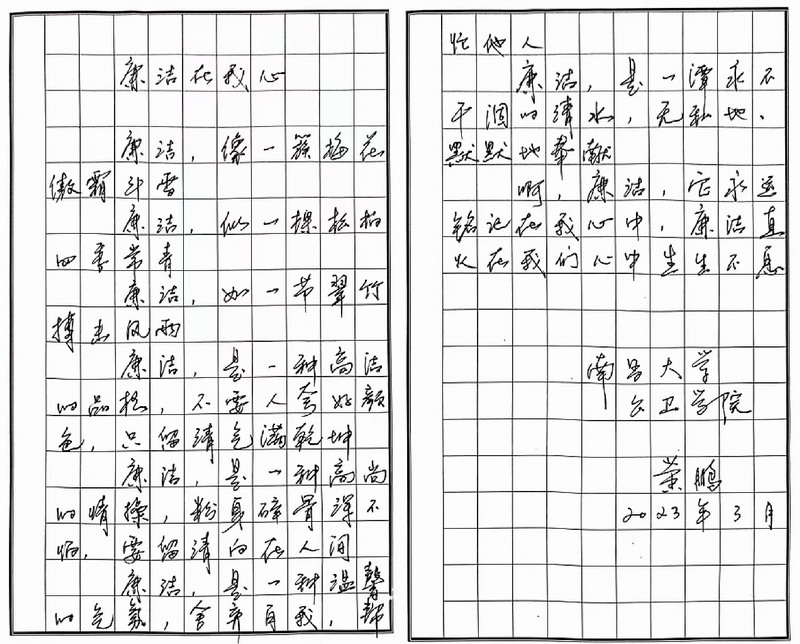 廉洁在我心
廉洁，像一簇梅花
傲霜斗雪
廉洁，似一棵松柏
四季常青
廉洁，如一节翠竹
搏击风雨
廉洁，是一种高洁
的品格，不要人夸好颜
色，只留清气满乾坤
廉洁，是一种高尚
的情操，粉身碎骨浑不
怕，要留清白在人间
廉洁，是一种温馨
的气氛，舍弃自我，帮
忙他人
廉洁，是一潭永不
干涸的清水，无私地、
默默地奉献
啊，廉洁，它永远
铭记在我心中，廉洁真
火在我们心中生生不息
南昌大学
公卫学院
黄鹏
2023年3月